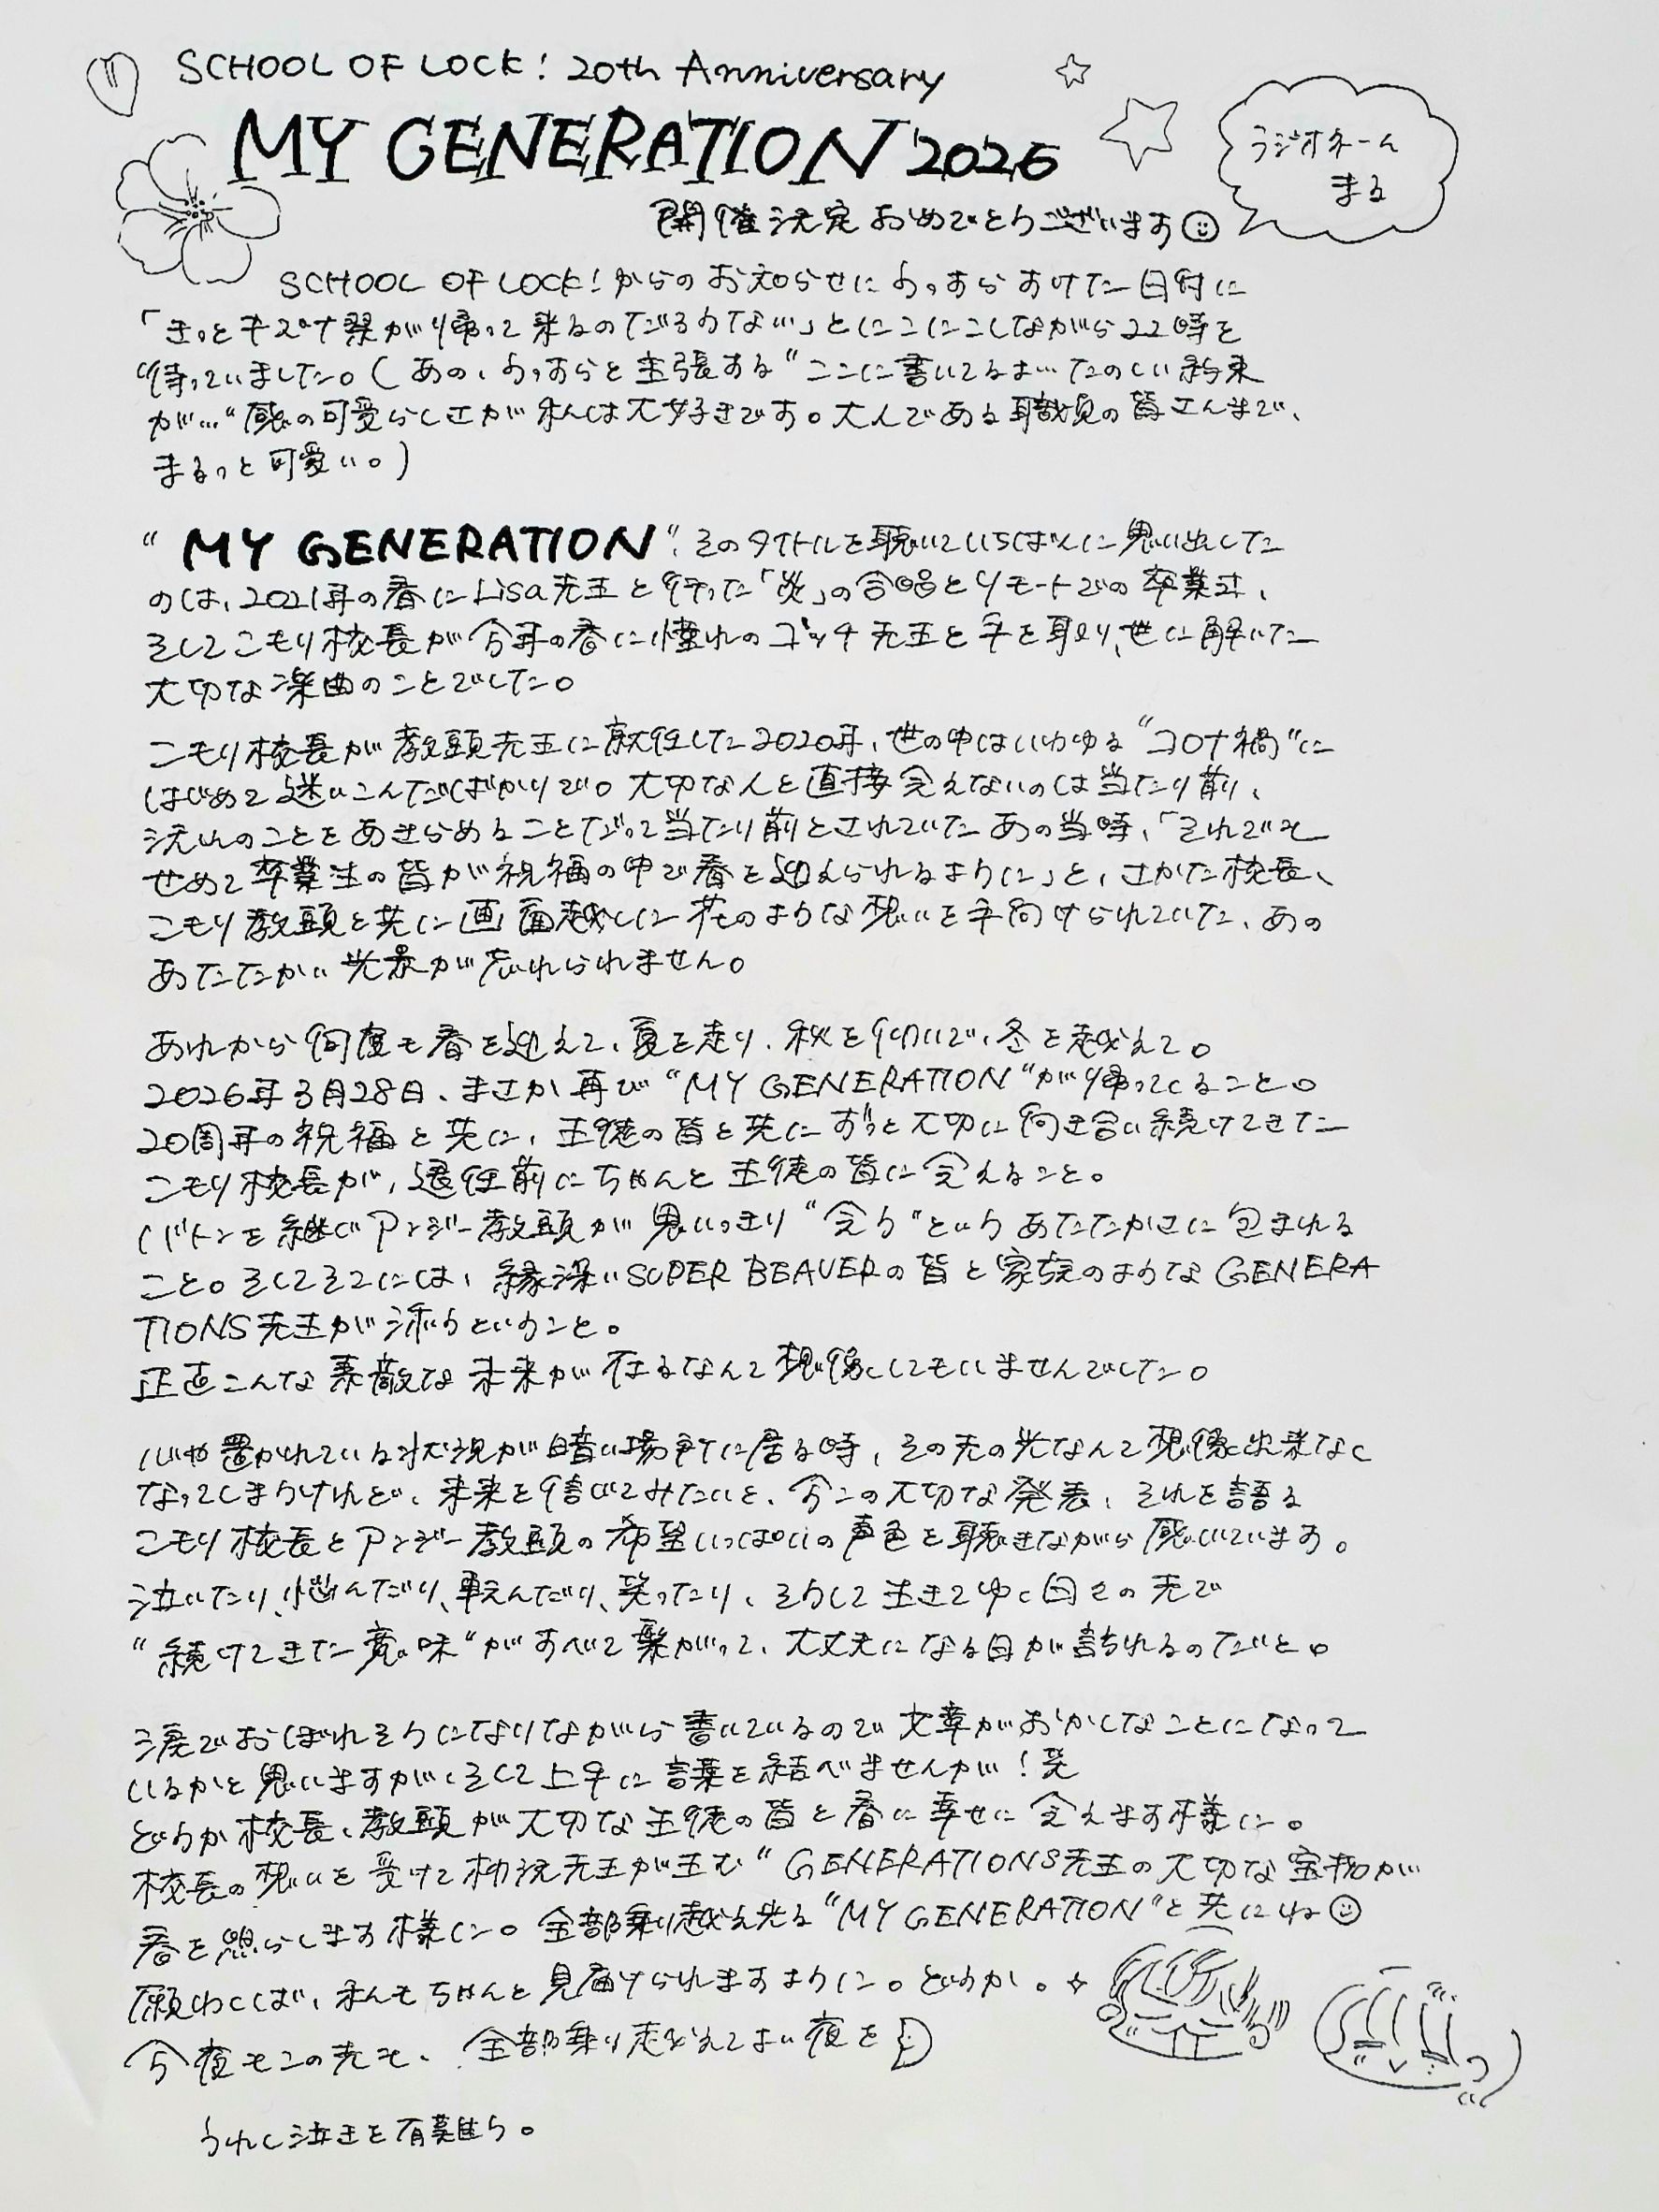 SCHOOL OF LOCK! 20th Anniversary
MY GENERATION 2026
ラジオネーム
まる
開催決定おめでとうございます
SCHOOL OF LOCK!からのお知らせにうっすらあけた日付に
「きっとキズナ祭が帰って来るのだろうな…」とにこにこしながら22時を
待っていました。(あの、うっすらと主張する“ここに書いてるよ…たのしい約束
が…“感の可愛らしさが私は大好きです。大人である職員の皆さんまで、
まるっと可愛い。)
“MY GENERATION“。そのタイトルを聴いていちばんに思い出した
のは、2021年の春にLisa先生と行った「炎」の合唱とリモートでの卒業式、
そしてこもり校長が今年の春に憧れのゴッチ先生と手を取り、世に解いた
大切な楽曲のことでした。
こもり校長が教頭先生に就任した2020年、世の中はいわゆる“コロナ禍“に
はじめて迷いこんだばかりで。大切な人と直接会えないのは当たり前、
沢山のことをあきらめることだって当たり前とされていたあの当時、「それでも
せめて卒業生の皆が祝福の中で春を迎えられるように」と、さかた校長、
こもり教頭と共に画面越しに花のような想いを手向けられていた、あの
あたたかい光景が忘れられません。
あれから何度も春を迎えて、夏を走り、秋を仰いで、冬を越えて。
2026年3月28日、まさか再び“MY GENERATION“が帰ってくること。
20周年の祝福と共に、生徒の皆と共にずっと大切に向き合い続けてきた
こもり校長が、退任前にちゃんと生徒の皆に会えること。
バトンを継ぐアンジー教頭が思いっきり“会う“というあたたかさに包まれる
こと。そしてそこには、縁深いSUPER BEAVERの皆と家族のようなGENERA
TIONS先生が添うということ。
正直こんな素敵な未来が在るなんて想像してもいませんでした。
心や置かれている状況が暗い場所に居る時、その先の光なんて想像出来なく
なってしまうけれど、未来を信じてみたいと、今この大切な発表、それを語る
こもり校長とアンジー教頭の希望いっぱいの声色を聴きながら感じています。
泣いたり、悩んだり、転んだり、笑ったり、そうして生きてゆく日々の先で
“続けてきた意味“がすべて繋がって、大丈夫になる日が訪れるのだと。
涙でおぼれそうになりながら書いているので文章がおかしなことになって
いるかと思いますが、そして上手に言葉を結べませんが!笑
どうか校長、教頭が大切な生徒の皆と春に幸せに会えます様に。
校長の想いを受けて柳沢先生が生む“GENERATIONS先生の大切な宝物が
春を照らします様に。全部乗り越え光る“MY GENERATION“と共にね
願わくば、私もちゃんと見届けられますように。どうか。
今夜もこの先も、全部乗り越えてよい夜を
うれし泣きを有難う。